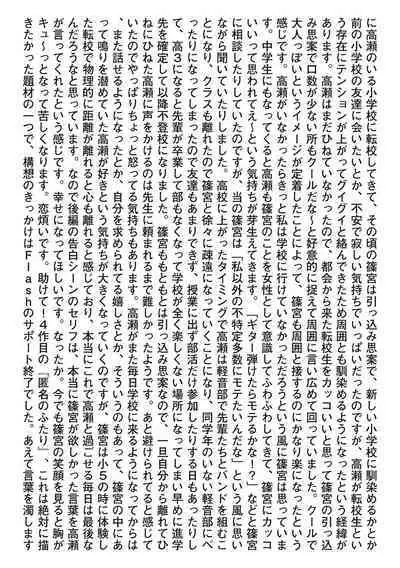 に高瀬のいる小学校に転校してきて、その頃の篠宮は引っ込み思案で、新しい小学校に馴染めるかとか
前の小学校の友達に会いたいとか、不安で寂しい気持ちでいっぱいだったのですが、高瀬が転校生とい
う存在にテンションが上がってグイグイと絡んできたため周囲とも馴染めるようになったという経緯が
あります。高瀬はまだひねていなかったので、都会から来た転校生をカッコいいと思って篠宮の引っ込
み思案で口数が少ない所もクールだなーと好意的に捉えて周囲に言い広めて回っていました。クールで
大人っぽいというイメージが定着したことによって、篠宮も周囲と接するのにかなり楽になったという
感じです。高瀬がいなかったらきっと私は学校に行けていなかっただろうという風に篠宮は思っていま
す。中学生にもなってくると高瀬も篠宮のことを女性として意識してふわふわしてきて、篠宮にカッコ
いいって思われてぇ〜という気持ちが芽生えてきます。「ギター弾けたらモテるかなー？」などと篠宮
に相談したりしていたのですが、当の篠宮は「私以外の不特定多数にモテたいんだな」という風に思い
ながら聞いていたりしました。高校に上がったタイミングで高瀬は軽音部で先輩たちとバンドを組むこ
とになり、クラスも離れたので篠宮と徐々に疎遠になっていくことになり、同学年のいない軽音部にべ
ったりになってしまったので友達もあまりできず、授業に出ず部活だけ参加したりする日もあったりし
て、高３になると先輩が卒業して部もなくなって学校が全く楽しくない場所になってしまい早めに進学
先を確定して以降不登校になりました。篠宮ももともとは引っ込み思案なので、一旦自分から離れてひ
ねにひねた高瀬に声をかけるのは先生に頼まれるまで難しかったようです。あと避けられてると感じて
いたのでやっぱりちょっと怒ってる気持ちもあります。高瀬がまた毎日学校に来るようになってからは
、また話せるようになったとか、自分を求められてる嬉しさとか、そういうのもあって、篠宮の中にあ
って鳴りを潜めていた高瀬が好きという気持ちが大きくなっていくのですが、篠宮は小５の時に体験し
た転校で物理的に距離が離れると心も離れると感じており、本当にこれで高瀬と過ごせる毎日は最後な
んだろうなと思っています。なので後編の告白シーンのセリフは、本当に篠宮が欲しかった言葉を高瀬
が言ってくれたという感じです。幸せになってほしいです。なったか。今でも篠宮の笑顔を見ると胸が
キュ〜っとなって苦しくなります。恋煩いです。助けて！４作目の『匿名のふたり』、これは絶対に描
きたかった題材の一つで、構想のきっかけはＦｌａｓｈのサポート終了でした。あえて言葉を濁します